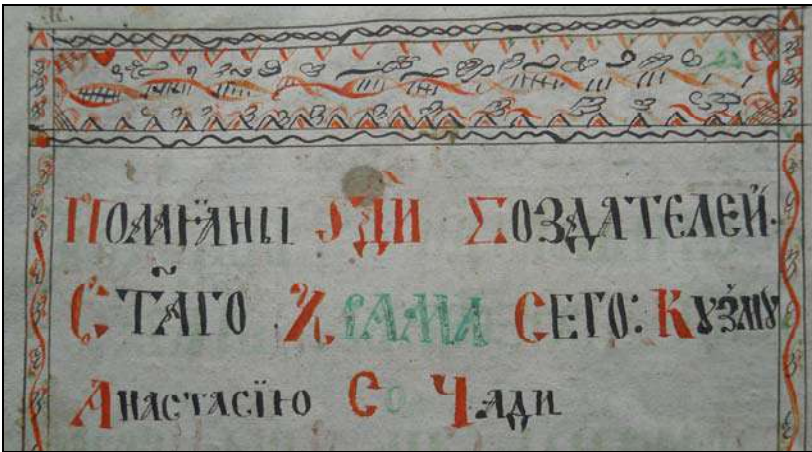 Помѧны Гд҃и Создателей.
Ст҃аго Храма Сего: Кꙋзмꙋ
Анастасїю Со Чади